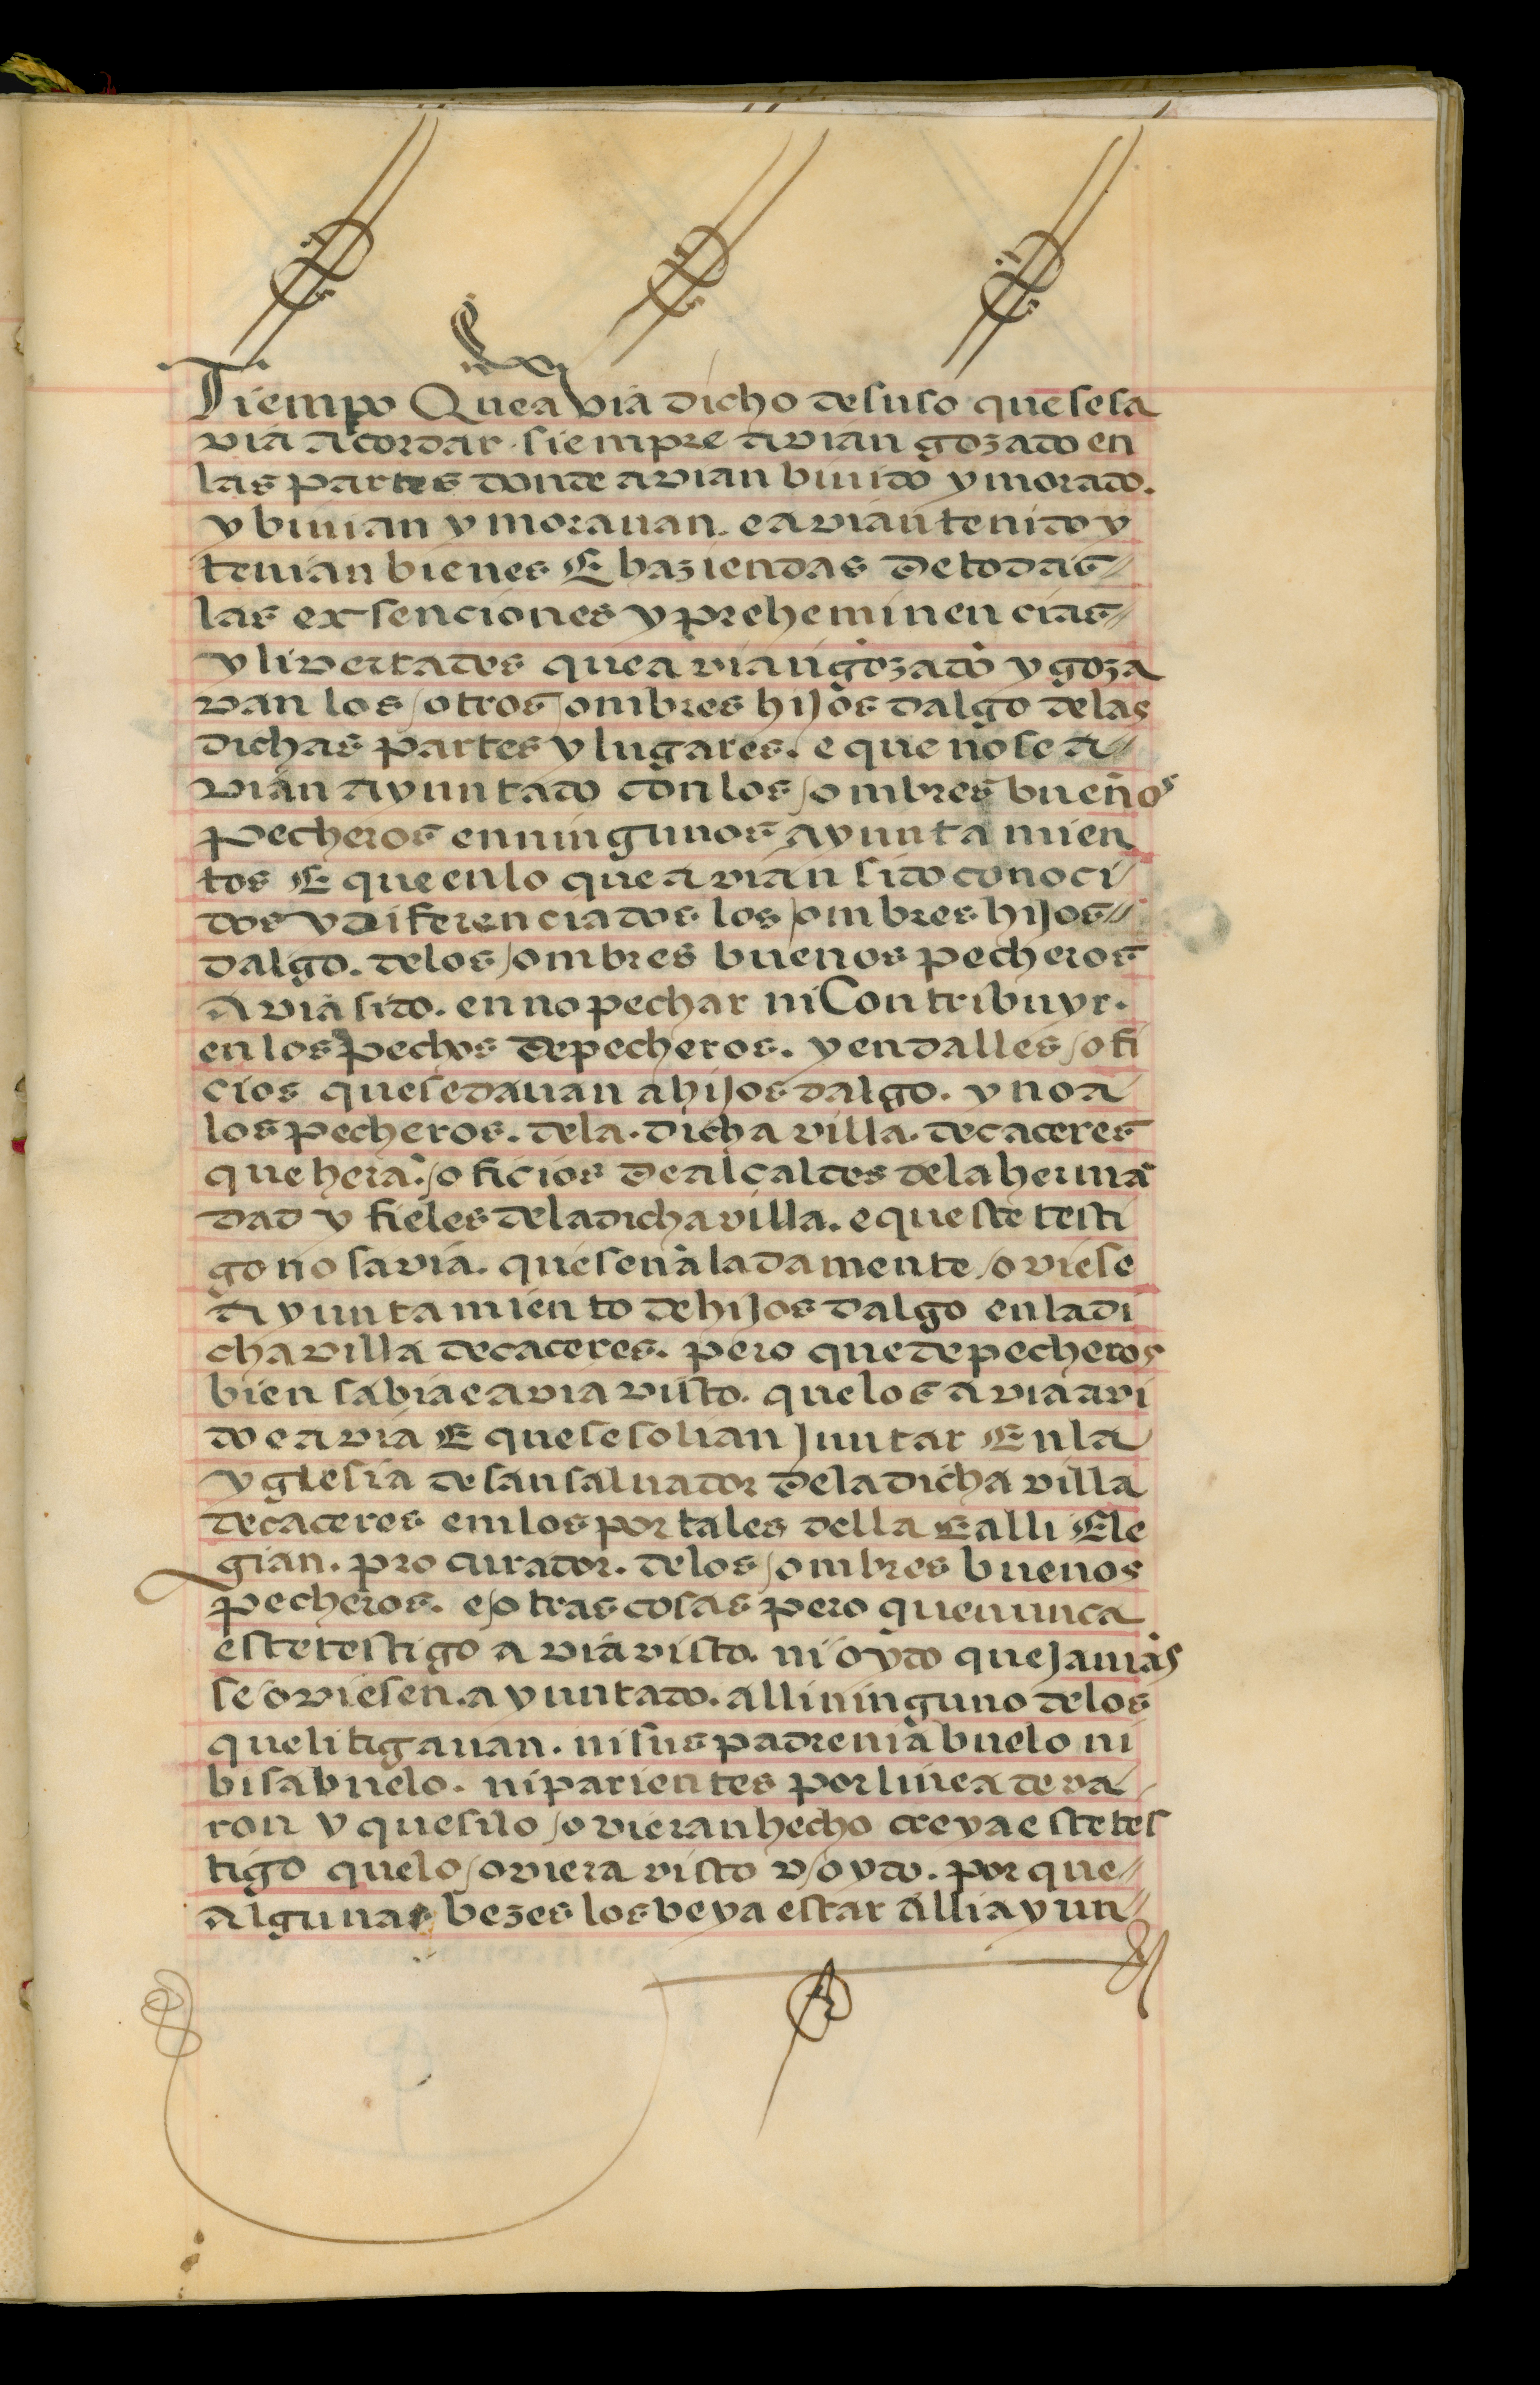 Tiempo Que avia dicho de suso que se sa
via acordar. siempre avian gozado en
las partes donde avian biuido y morado.
y biuian y morauan. e avian tenido y
tenian bienes E haziendas de todas
las exsenciones y preheminencias
y livertades que avian gozado y goza
van los otros ombres hijos dalgo de las
dichas partes y lugares. e que no se a
vian ayuntado con los ombres buenos
pecheros en ningunos ayuntamien
tos E que en lo que avian sido conoci
dos y diferenciados los ombres hijos
dalgo. de los ombres buenos pecheros
avia sido. en no pechar ni Contribuyr.
en los pechos de pecheros. y en dalles ofi
cios que se dauan a hijos dalgo. y no a
los pecheros. de la. dicha villa. de caceres
que hera. oficios de alcaldes de la herma
dad y fieles de la dicha villa. e que ste testi
go no savia. que señaladamente oviese
ayuntamiento de hijos dalgo en la di
cha villa de caceres. pero que de pecheros
bien sabia e avia visto. que los avia avi
do e avia E que se solian Juntar En la
yglesia de san saluador de la dicha villa
de caceres en los portales della E alli Ele
gian. procurador. de los ombres buenos
pecheros. e otras cosas pero que nunca
este testigo avia visto. ni oydo que Jamas
se oviesen. ayuntado. alli ninguno de los
que litigauan. ni sus padre ni abuelo ni
bisabuelo. ni parientes por linea de va
ron y que si lo ovieran hecho creya este tes
tigo que lo oviera visto y oydo. por que
Algunas bezes los beya estar alli ayun